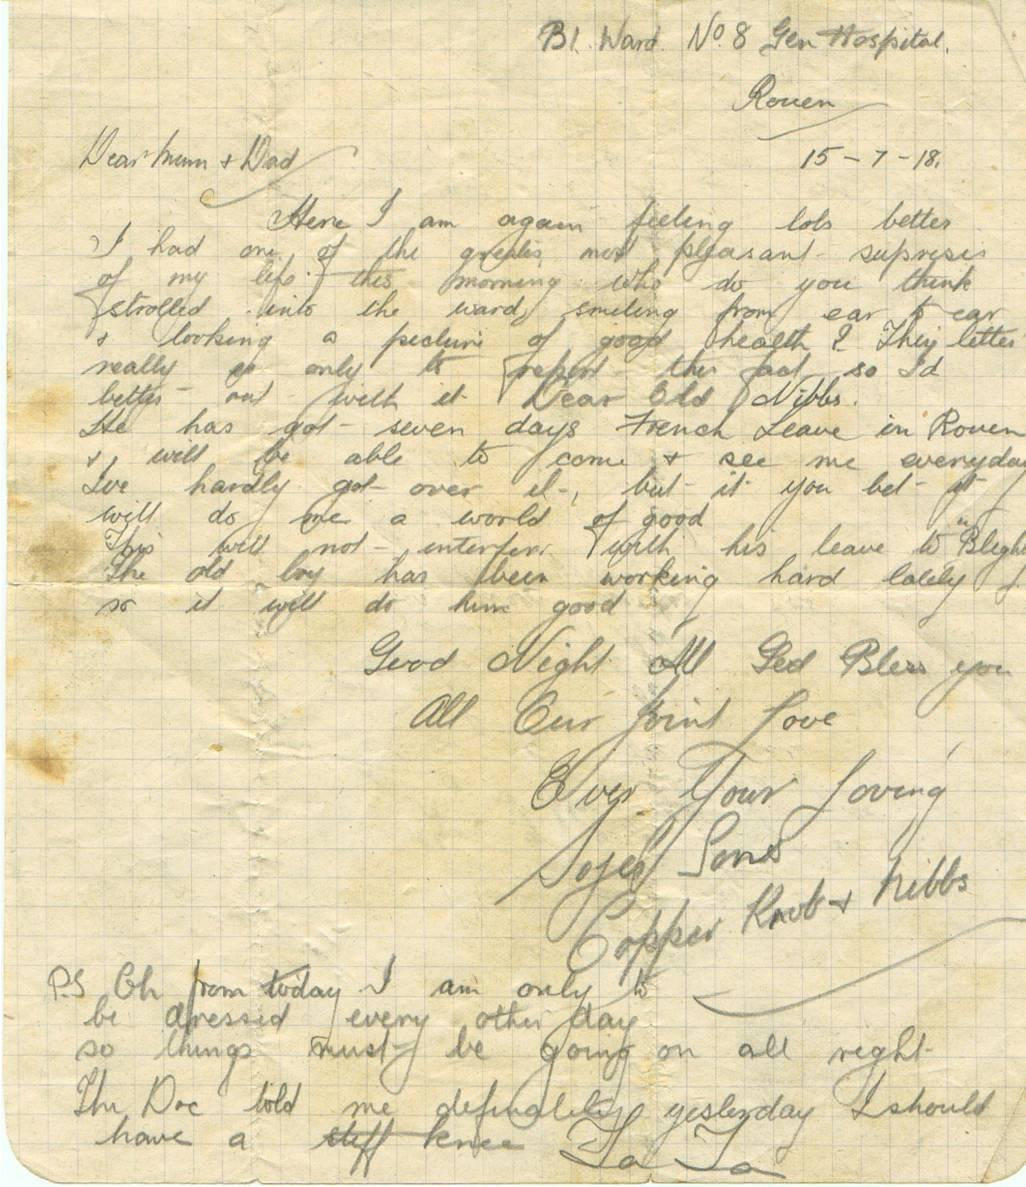 B1. Ward. No. 8 Gen Hospital.
Rouen
15-7-18.
Dear Mum & Dad
Here I am again feeling lots better
I had one of the greates most pleasant supresis
of my life. this morning who do you think
strolled into the ward, smiling from ear to ear
& looking a picture of good health? This letter
really is only to report this fact so Id
better out with it Dear Old Nibbs.
He has got seven days French Leave in Rouen
& will be able to come & see me everyday
I've hardly got over it, but it you bet it
will do me a world of good
This will not interferr with his leave to "Blight
The old boy has been working hard lately
so it will do him good
Good Night All God Bless you
All Our Joint Love
Ever Your Loving
Sojer Sons
Copper Knob & Nibbs
P.S Oh from today I am only to
be dressed every other day
so things must be going on all right
The Doc told me definately yesterday I should
have a stiff knee Ta Ta